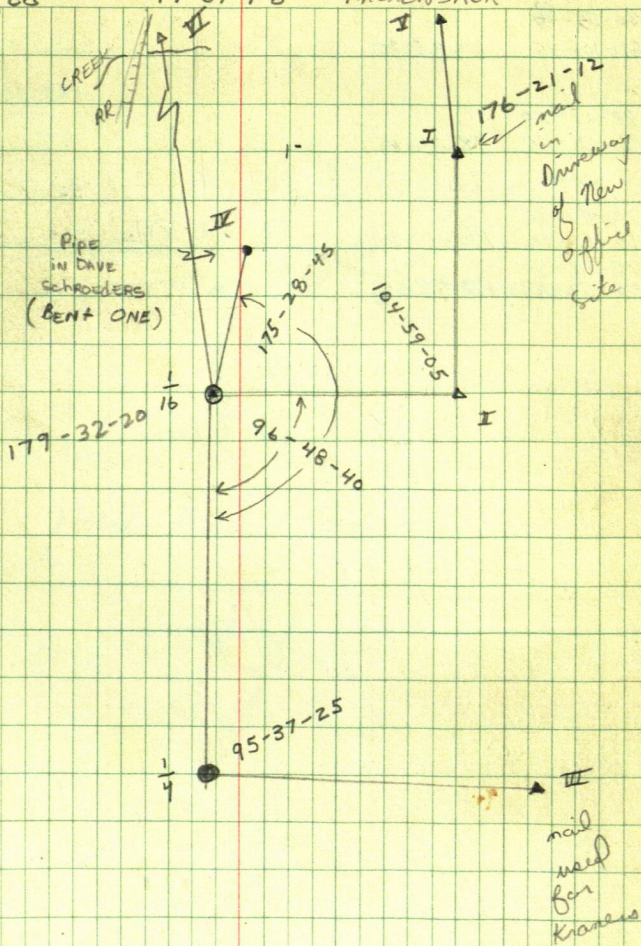 VI
V
CREEK
RR
176-21-12
I
nail
in
Driveway
of New
Office
Site
1-
IV
Pipe
in DAVE
SchroEDERS
(BENT ONE)
175-28-45
104-59-05
1/16
I
179-32-20
96-48-40
95-37-25
1/4
III
nail
used
for